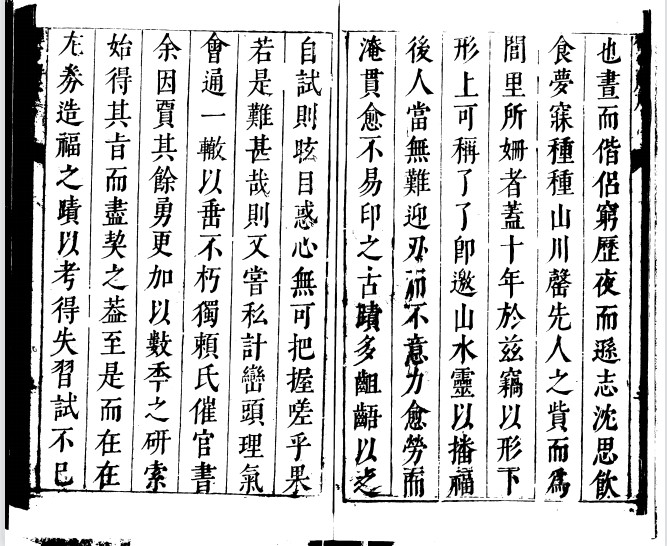 也晝而偕侶窮歷夜而遜志沈思飲
食夢寐種種山川罄先人之貲而為
閭里所姍者蓋十年於茲竊以形下
形上可稱了了卽邀山水靈以播福
後人當無難迎刃而不意力愈勞而
淹貫愈不易印之古蹟多齟齬以之
自試則眩目惑心無可把握嗟乎果
若是難甚哉則又嘗私計巒頭理氣
會通一轍以垂不朽獨賴氏催官書
余因賈其餘勇更加以數秊之研索
始得其旨而盡契之葢至是而在在
左券造福之蹟以考得失習試不已